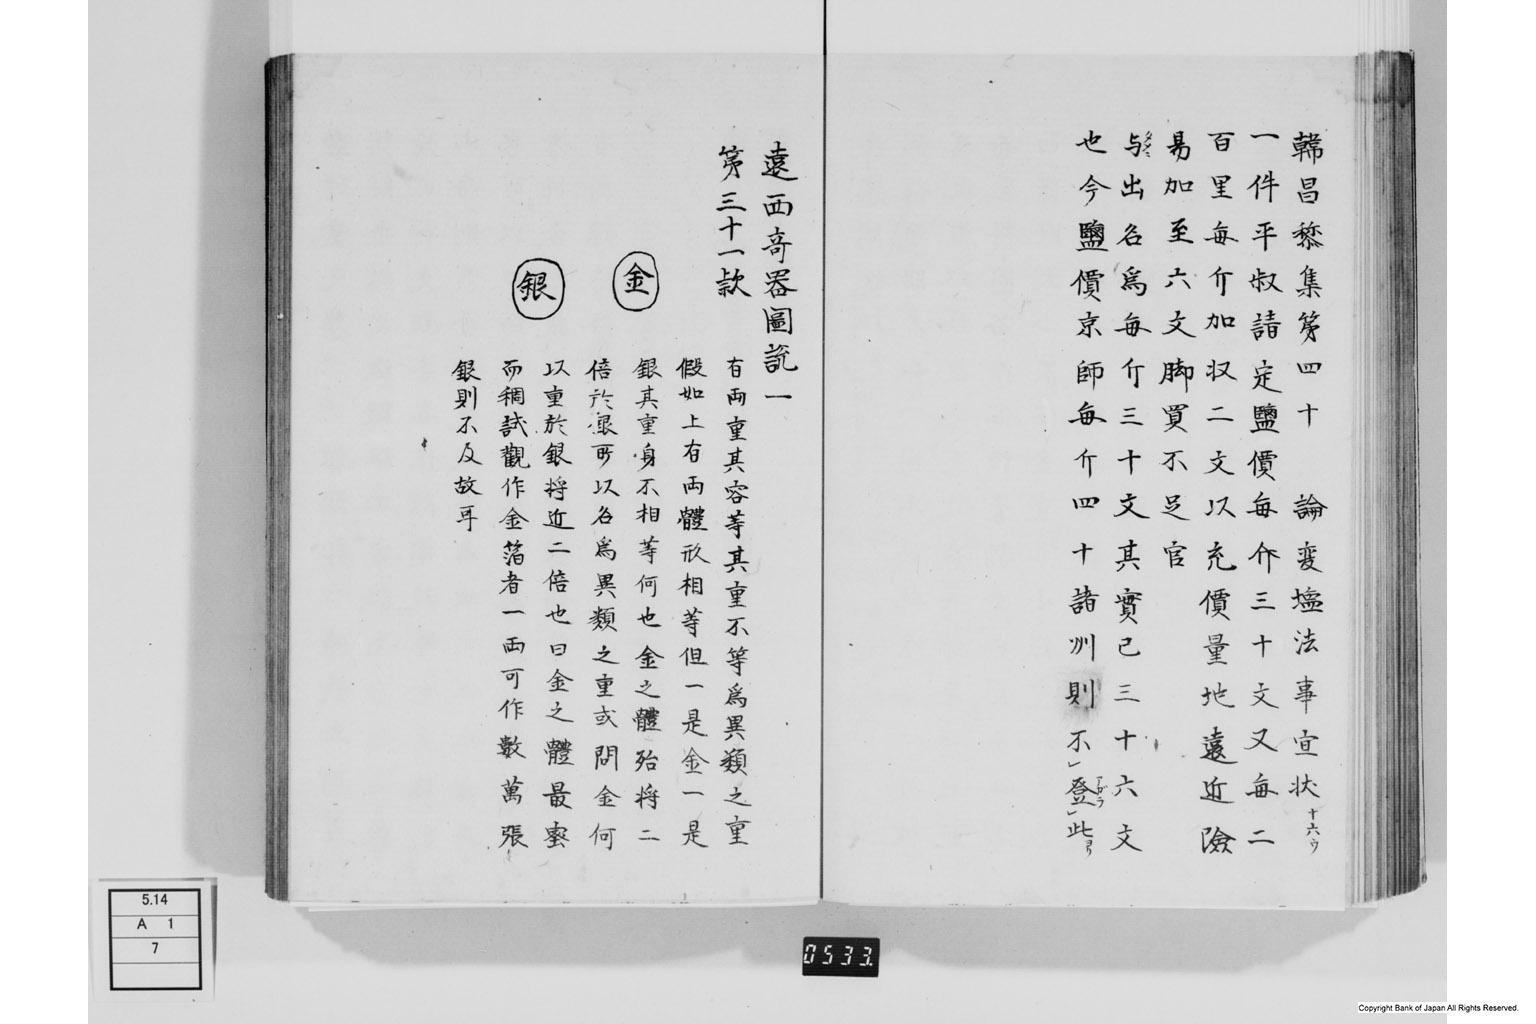 韓昌黎集第四十　論変塩法事宜状 十六ウ
一件平叔請定鹽價每斤三十文又每二
百里每斤加収二文以充價量地遠近險
易加至六文脚買不足官
与出名爲每斤三十文其實已三十六文
也今鹽價京師每斤四十諸州則不」登」此
遠西奇器圖説一
第三十一款
金
銀
有兩重其容等其重不等爲異類之重
假如上有兩體形相等但一是金一是
銀其重身不相等何也金之體殆將二
倍於銀所以名爲異類之重或問金何
以重於銀將近二倍也曰金之體最密
而稠試觀作金箔者一兩可作數萬張
銀則不及故耳
5.14
A 1
7
0533.
Copyright Bank of Japan All Rights Reserved.